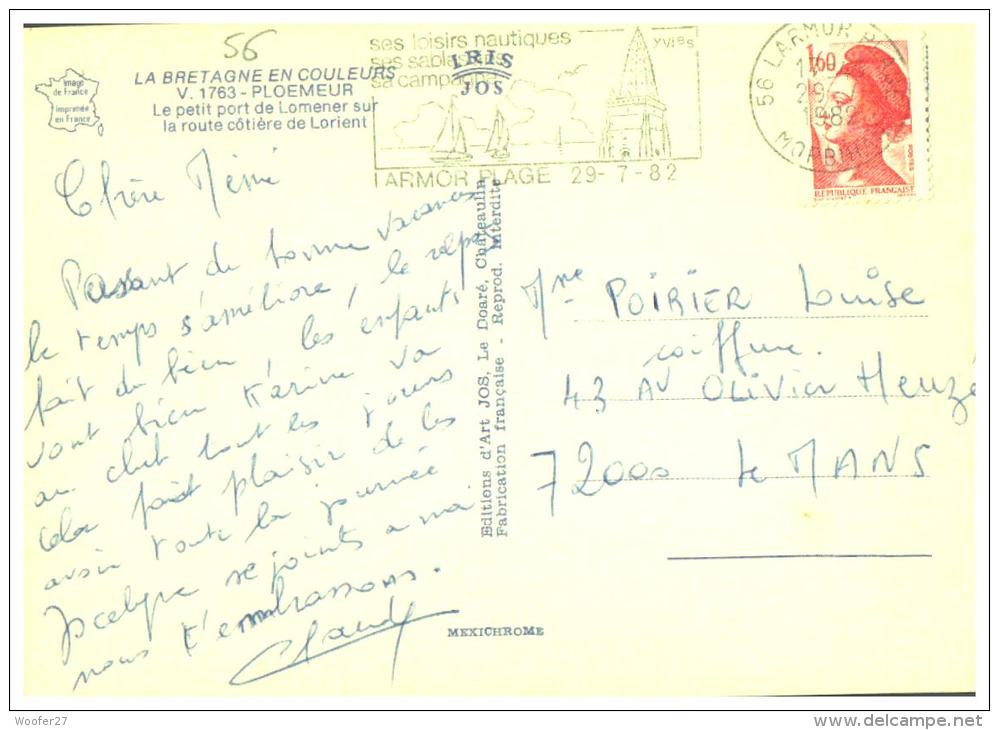 56
Image
de France
Imprimée
en France
LA BRETAGNE EN COULEURS
V. 1763 - PLOEMEUR
Le petit port de Lomener sur
la route côtière de Lorient
ses loisirs nautiques
ses sables fins
sa campagne
IRIS
JOS
YVIES
LARMOR PLAGE 29-7-82
56 LARMOR
29-
1982
MORBIHAN
1,60
POSTES
REPUBLIQUE FRANÇAISE
Chère Mémé
Passant de bonne vacances
le temps s'améliore, le repos
fait du bien, les enfants
vont bien Karine va
au club tout les jours
cela fait plaisir de les
avoir toute la journée
Jocelyne se joints a moi
nous t'embrassons.
Claude
Editions d'Art JOS, Le Doaré, Châteaulin
Fabrication française - Reprod. Interdite
MEXICHROME
Mme POIRIER Louise
coiffure.
43 AV OLIVIER Heuzé
72000 Le MANS
Woofer27
delcampe.net